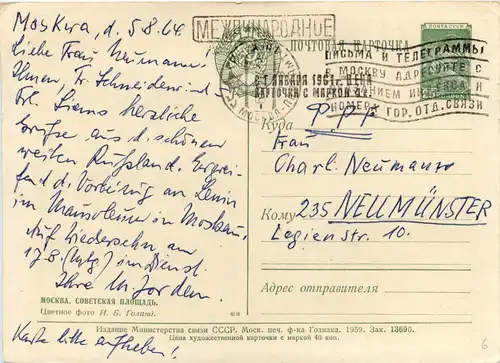 Moskwa, d. 5.8.64
Liebe Frau Neumann,
Ihnen, Fr. Schneider und
Frl. Siems herzliche
Grüße aus d. schönen
weiten Rußland. Ergrei-
fend d. Vorbeizug an Lenin
im Mausoleum in Moskau.
Auf Wiedersehn am
17.8. im Dienst.
Ihre
МОСКВА. СОВЕТСКАЯ ПЛОЩАДЬ.
Цветное фото И. Б. Голанд.
Karte bitte aufheben!
МЕЖДУНАРОДНОЕ
ПОЧТОВАЯ КАРТОЧКА
ПОЧТА СССР
ПИСЬМА И ТЕЛЕГРАММЫ
В МОСКВУ АДРЕСУЙТЕ С
НОМЕРА ГОР. ОТД. СВЯЗИ
С 1 ЯНВАРЯ 1961 г. ЦЕНА
КАРТОЧКИ С МАРКОЙ 4 к.
МОСКВА
Куда
Ф.Р.Г.
Frau
Charl. Neumann
Кому 235 NEUMÜNSTER
Legienstr. 10.
Адрес отправителя
Издание Министерства связи СССР. Моск. печ. ф-ка Гознака. 1959. Зак. 13690.
Цена художественной карточки с маркой 40 коп.
6